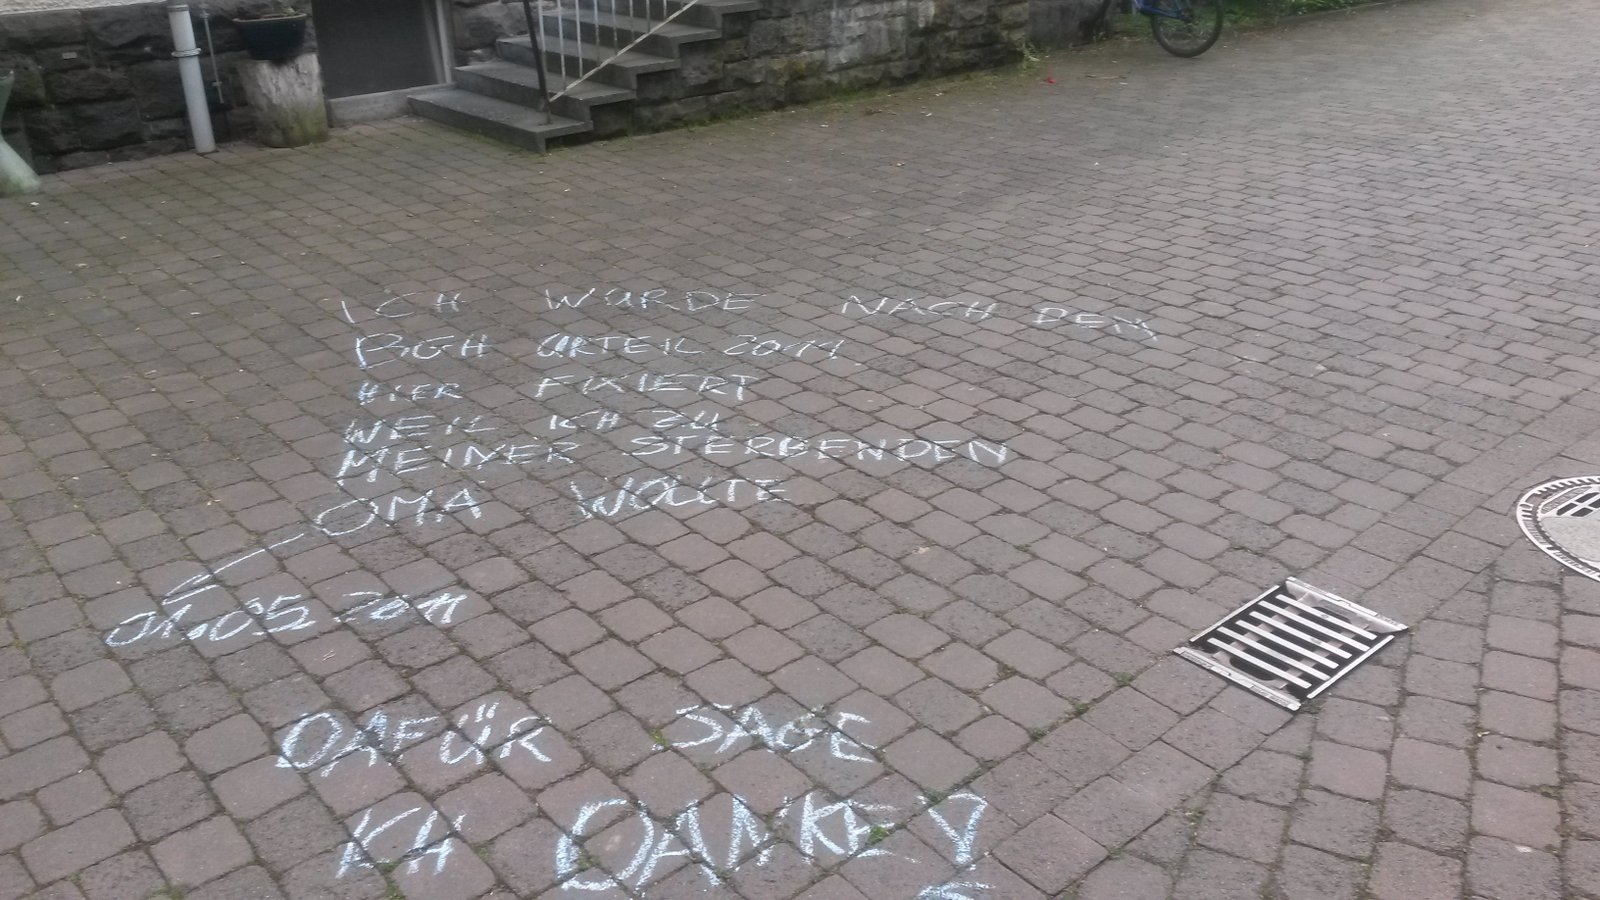 ICH WURDE NACH DEM
BGH URTEIL 2011
HIER FIXIERT
WEIL ICH ZU
MEINER STERBENDEN
OMA WOLLTE
01.05.2011
DAFÜR SAGE
ICH DANKE!